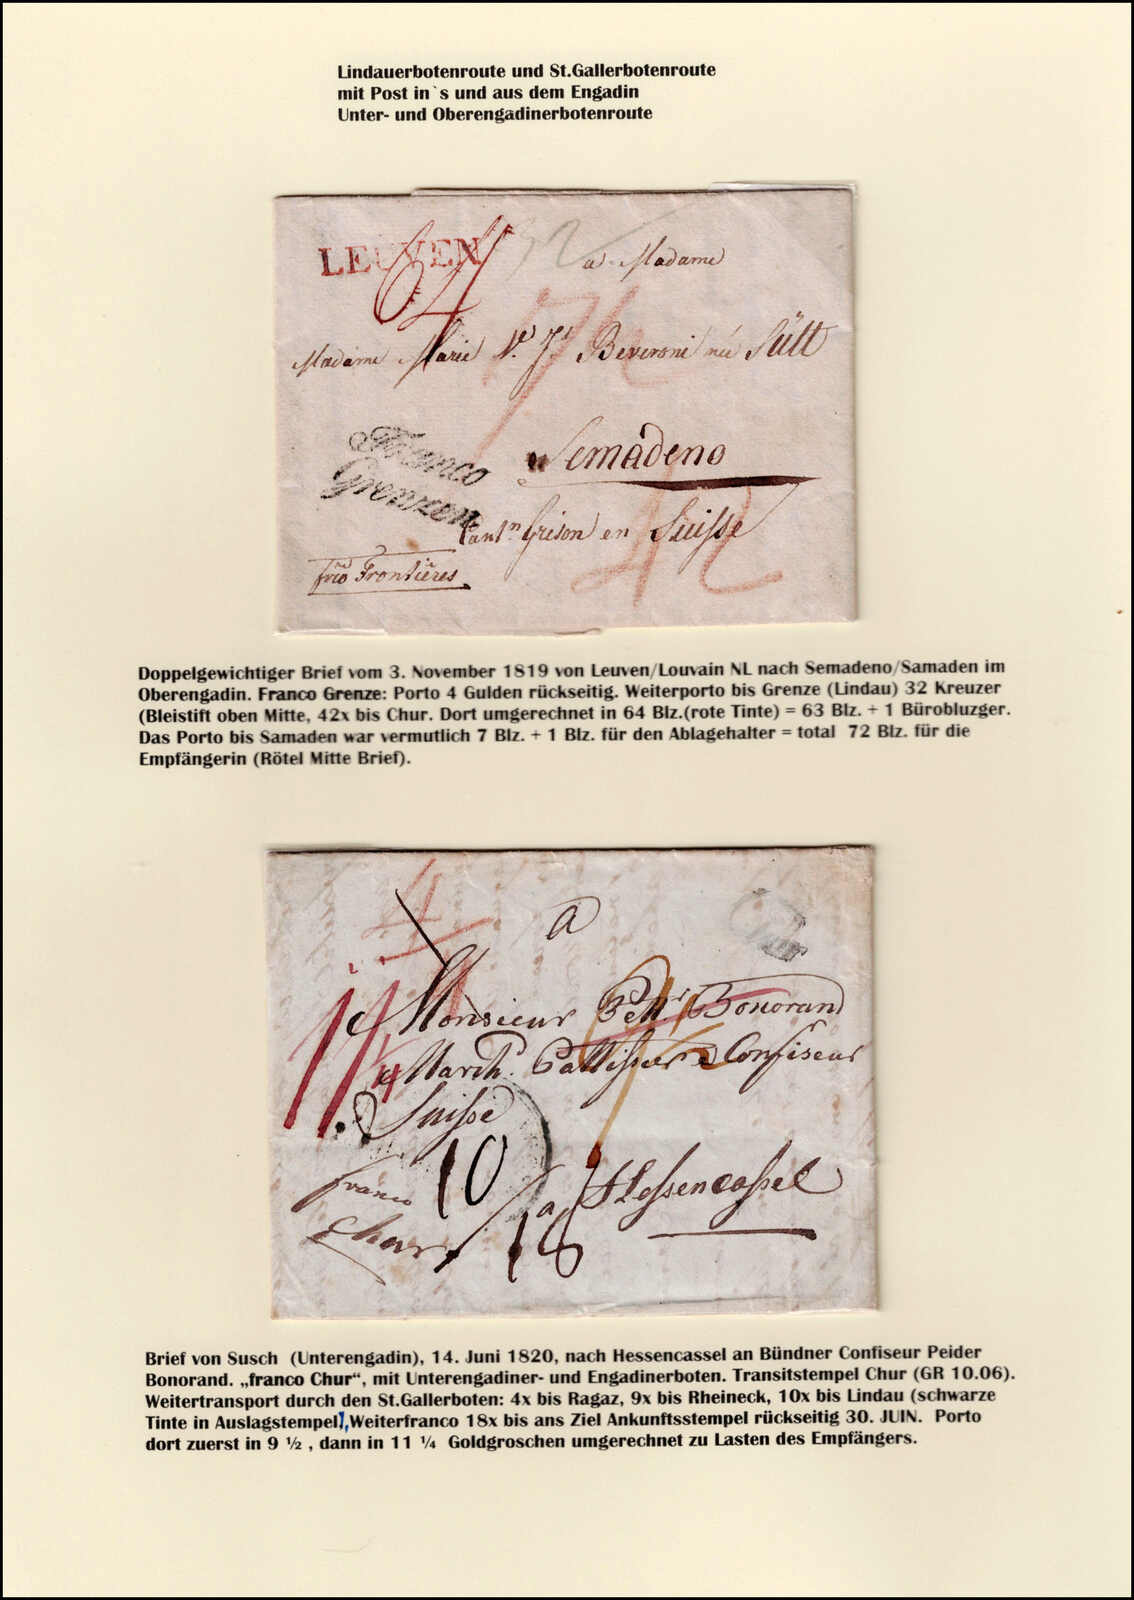 Lindauerbotenroute und St.Gallerbotenroute
mit Post in`s und aus dem Engadin
Unter- und Oberengadinerbotenroute
LEUVEN
64
32
a Madame
Madame Marie Beveroni née Sütt
Semadeno
Franco
Grenzen
Cant.n Grison en Suisse
42
frco Frontières
Doppelgewichtiger Brief vom 3. November 1819 von Leuven/Louvain NL nach Semadeno/Samaden im
Oberengadin. Franco Grenze: Porto 4 Gulden rückseitig. Weiterporto bis Grenze (Lindau) 32 Kreuzer
(Bleistift oben Mitte, 42x bis Chur. Dort umgerechnet in 64 Blz.(rote Tinte) = 63 Blz. + 1 Bürobluzger.
Das Porto bis Samaden war vermutlich 7 Blz. + 1 Blz. für den Ablagehalter = total 72 Blz. für die
Empfängerin (Rötel Mitte Brief).
4
a
Monsieur Bonorand
March. Pattissier e Confiseur
11 1/4
Suisse
10
franco
Chur
18
a Hessencassel
Brief von Susch (Unterengadin), 14. Juni 1820, nach Hessencassel an Bündner Confiseur Peider
Bonorand. „franco Chur“, mit Unterengadiner- und Engadinerboten. Transitstempel Chur (GR 10.06).
Weitertransport durch den St.Gallerboten: 4x bis Ragaz, 9x bis Rheineck, 10x bis Lindau (schwarze
Tinte in Auslagstempel),Weiterfranco 18x bis ans Ziel Ankunftsstempel rückseitig 30. JUIN. Porto
dort zuerst in 9 ½ , dann in 11 ¼ Goldgroschen umgerechnet zu Lasten des Empfängers.